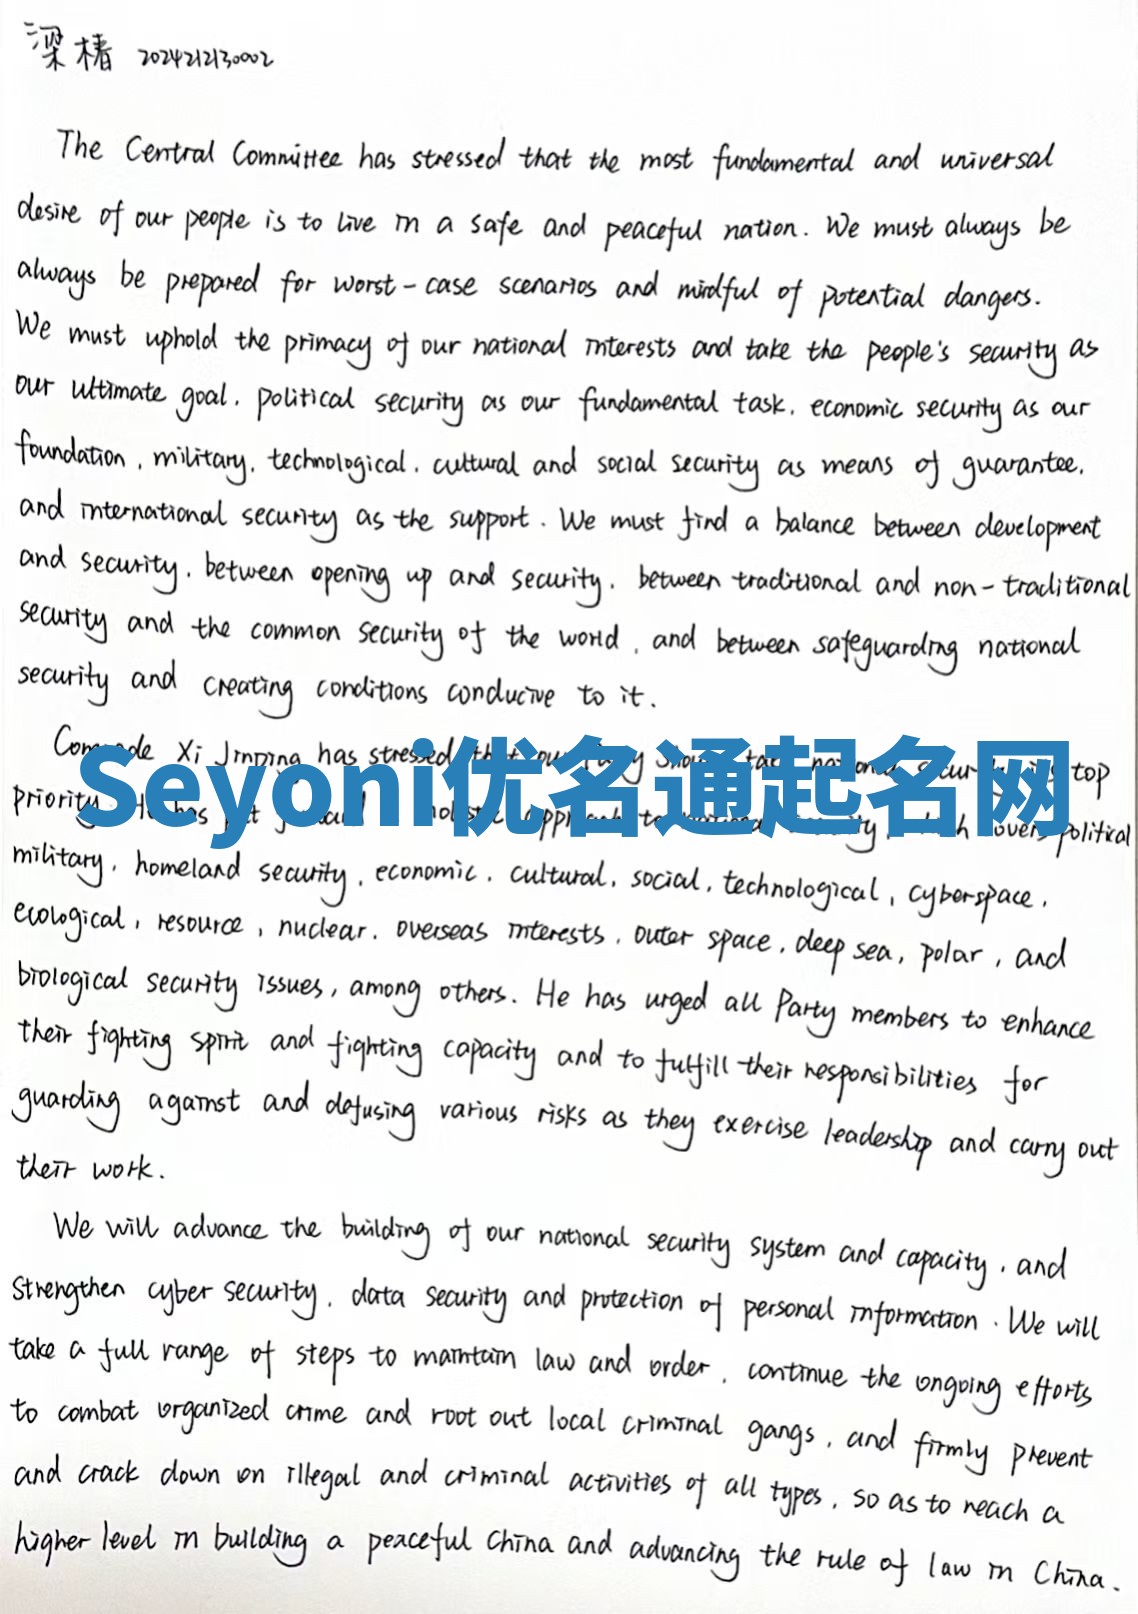 梁椿 2024212130002
The Central Committee has stressed that the most fundamental and universal
desire of our people is to live in a safe and peaceful nation. We must always be
always be prepared for worst-case scenarios and mindful of potential dangers.
We must uphold the primacy of our national interests and take the people's security as
our ultimate goal, political security as our fundamental task, economic security as our
foundation, military, technological, cultural and social security as means of guarantee,
and international security as the support. We must find a balance between development
and security, between opening up and security, between traditional and non-traditional
security and the common security of the world, and between safeguarding national
security and creating conditions conducive to it.
Comrade Xi Jinping has stressed that our Party should take national security top
Seyoni优名通起名网
priority. He has put holistic approach to political
military, homeland security, economic, cultural, social, technological, cyberspace,
ecological, resource, nuclear, overseas interests, outer space, deep sea, polar, and
biological security issues, among others. He has urged all Party members to enhance
their fighting spirit and fighting capacity and to fulfill their responsibilities for
guarding against and defusing various risks as they exercise leadership and carry out
their work.
We will advance the building of our national security system and capacity, and
strengthen cyber security, data security and protection of personal information. We will
take a full range of steps to maintain law and order, continue the ongoing efforts
to combat organized crime and root out local criminal gangs, and firmly prevent
and crack down on illegal and criminal activities of all types, so as to reach a
higher level in building a peaceful China and advancing the rule of law in China.